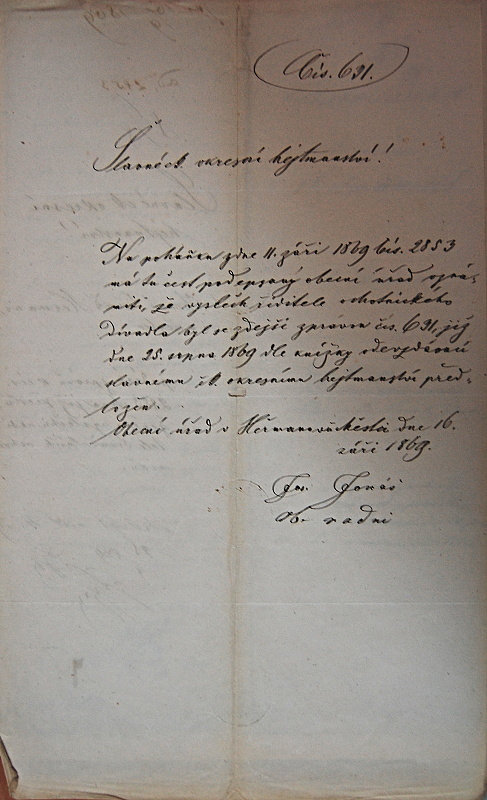 Čís. 691.
Slavné c.k. okresní hejtmanství!
Na poháňku zdne 11. září 1869 čís. 2853
má tu čest podepsaný obecní úřad oznám-
iti, že výslech ředitele ochotnického
divadla byl se zdejší zprávou čís. 691, již
dne 25. srpna 1869 dle knížky odevzdávací
slavnému c.k. okresnímu hejtmanství před-
ložen.
Obecní úřad v Heřmanověměstci dne 16.
září 1869.
Jos. Jonáš
Ob. radní